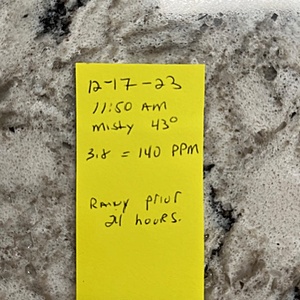 12-17-23
11:50 AM
misty 43°
3.8 = 140 PPM
Rainy prior
21 hours.